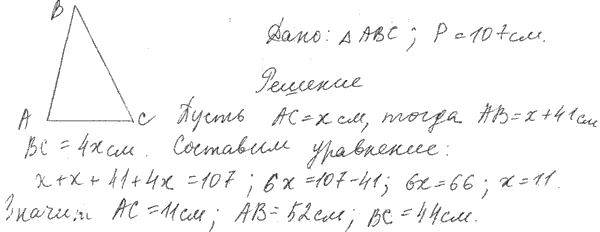 B
Дано: △ ABC; P = 107 см.
Решение
A C Пусть AC = x см, тогда AB = x + 41 см
BC = 4x см. Составим уравнение:
x + x + 41 + 4x = 107; 6x = 107 - 41; 6x = 66; x = 11.
Значит AC = 11 см; AB = 52 см; BC = 44 см.